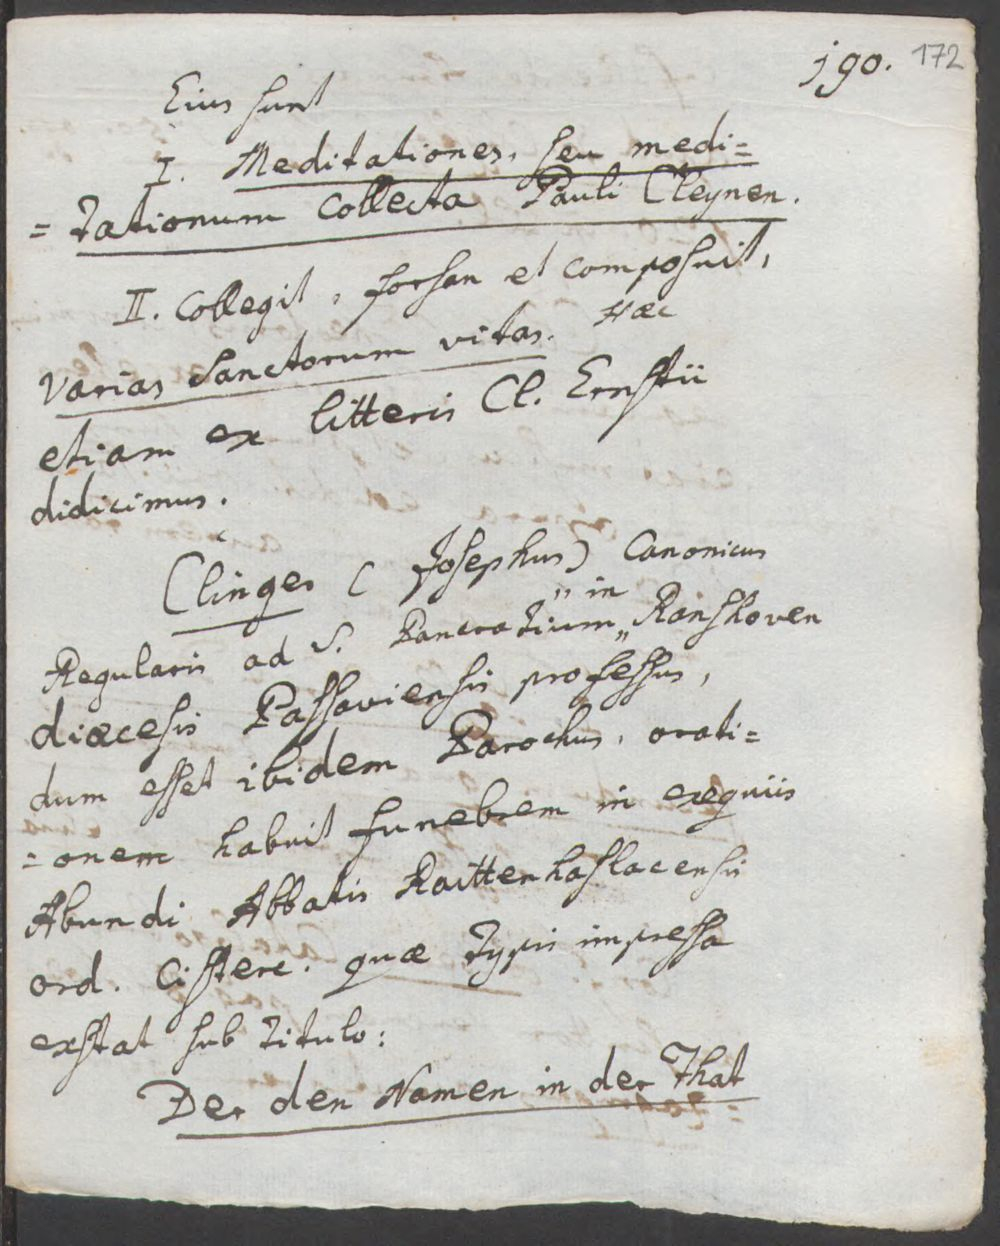 190. 172
Eius sunt
I. Meditationes, seu medi=
=tationum collecta Pauli Cleynen.
II. Collegit, forsan et composuit,
varias Sanctorum vitas. Hæc
etiam ex litteris Cl. Ernstii
didicimus.
Clinger (Josephus) Canonicus
Regularis ad S. Pancratium „ in „ Ranshoven
diæcesis Passaviensis professus,
dum esset ibidem Parochus, orati=
=onem habuit funebrem in exequiis
Abundi Abbatis Raittenhaslacensis
ord. Cisterc. quæ typis impressa
exstat sub titulo:
Der den Namen in der That